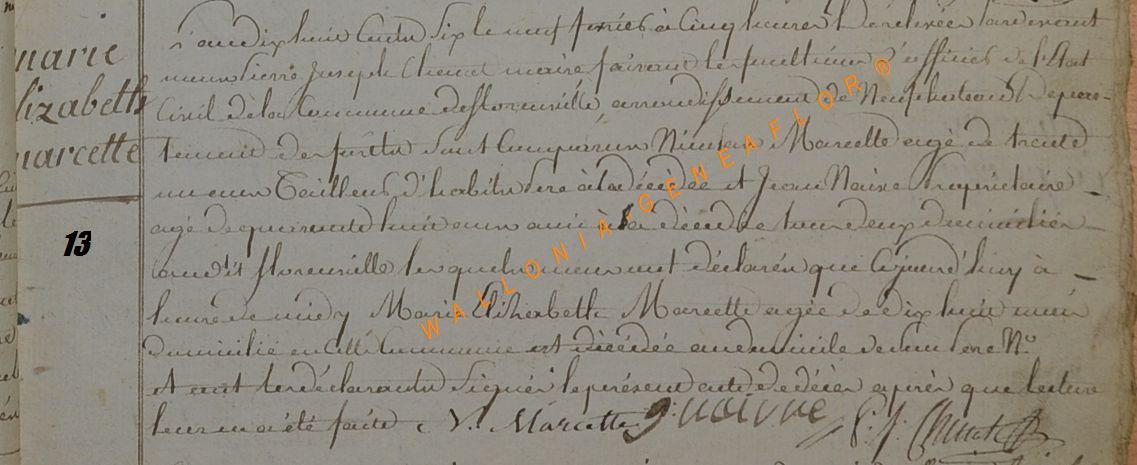 marie
lizabeth
marcette
13
L'an dix huit Cent Six le neuf fevrié à Cinq heures de relevée pardevant
nous Pierre Joseph Chenet maire faisant les fonctions d'officiés de l'Etat
Civil de la Commune de florenville arrondissement de Neufchateau Depar-
tement des forêts sont Comparus Nicolas Marcette agé de trente
un ans Tailleur d'habits pere à la décédée et Jean Naise propriétaire
agé de quarante huit ans ami à la décédée tous deux domiciliés
audit florenville les quels nous ont déclarés que Cejourd'huy à
heure de midy Marie Elizabeth Marcette agée de dix huit mois
domicilié en cette Commune est décédée au domicile de son pere N.°
et ont les déclarants Signés le présent acte de décès après que lecture
leur en a été faite N. Marcette J: naisse P. J. Chenet
WALLONIA-GENEAFLOR®